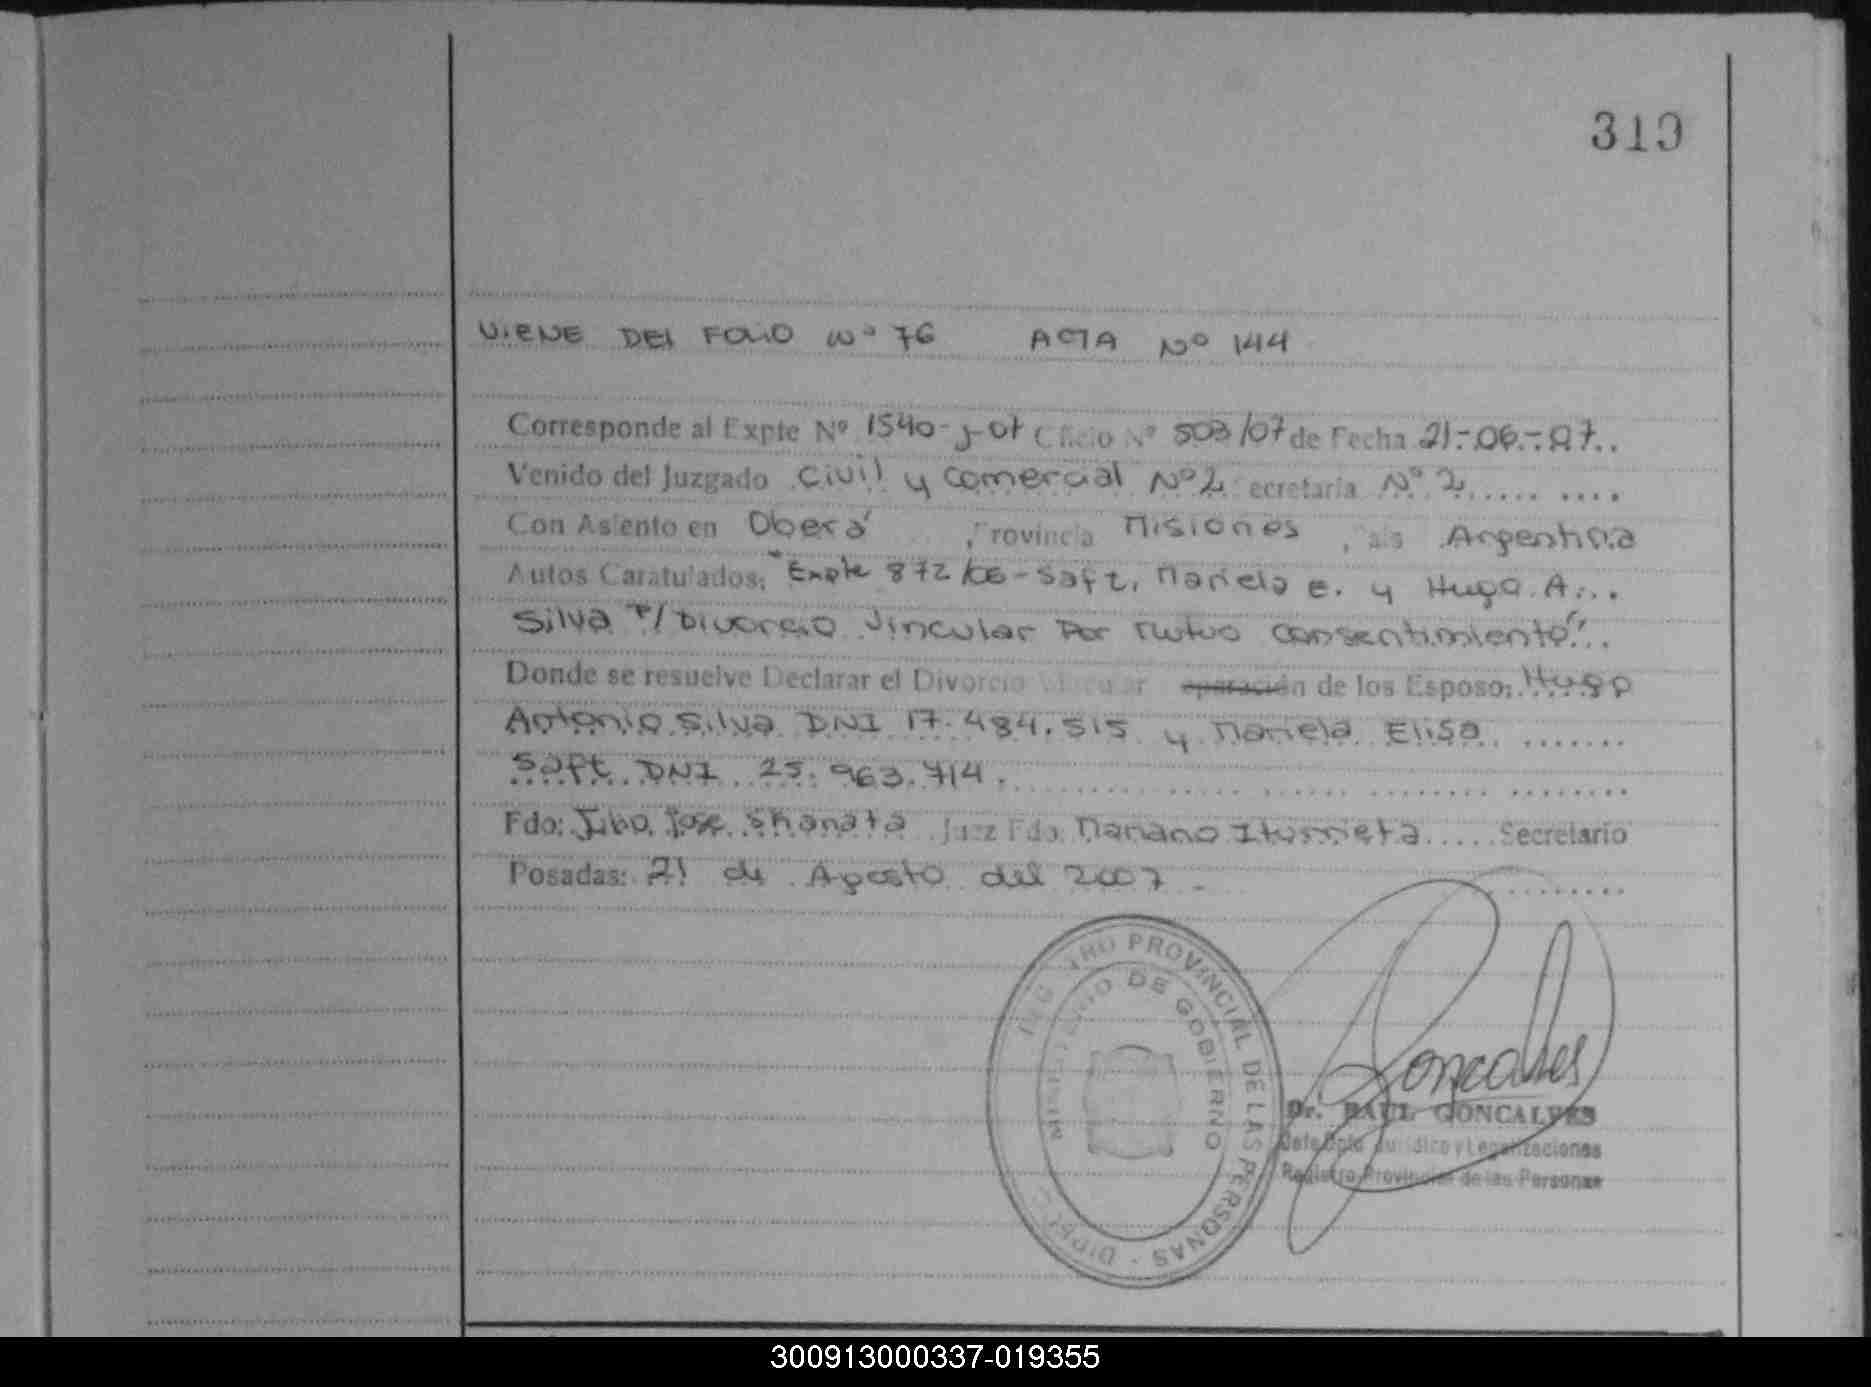 319
VIENE DEL FOLIO Nº 76 ACTA Nº 144
Corresponde al Expte Nº 1540-J-07 Oficio Nº 503/07 de Fecha 21-06-07..
Venido del Juzgado Civil y Comercial Nº 2 Secretaria Nº 2 ..........
Con Asiento en Oberá, Provincia Misiones, País Argentina
Autos Caratulados: "Expte 872/06-Saft, Mariela E. y Hugo A...
Silva P/ Divorcio Vincular Por Mutuo Consentimiento"..
Donde se resuelve Declarar el Divorcio Vincular eparación de los Esposo: Hugo
Antonio Silva DNI 17.484.515 y Mariela Elisa .......
Saft DNI 25.963.714.
Fdo: José Juez Fdo. Mariano Iturrieta ..... Secretario
Posadas: 21 de Agosto del 2007.
REGISTRO PROVINCIAL DE LAS PERSONAS -
MINISTERIO DE GOBIERNO
Goncalves
Dr. RAUL GONCALVES
Jefe Dpto Jurídico y Legalizaciones
Registro Provincial de las Personas
300913000337-019355